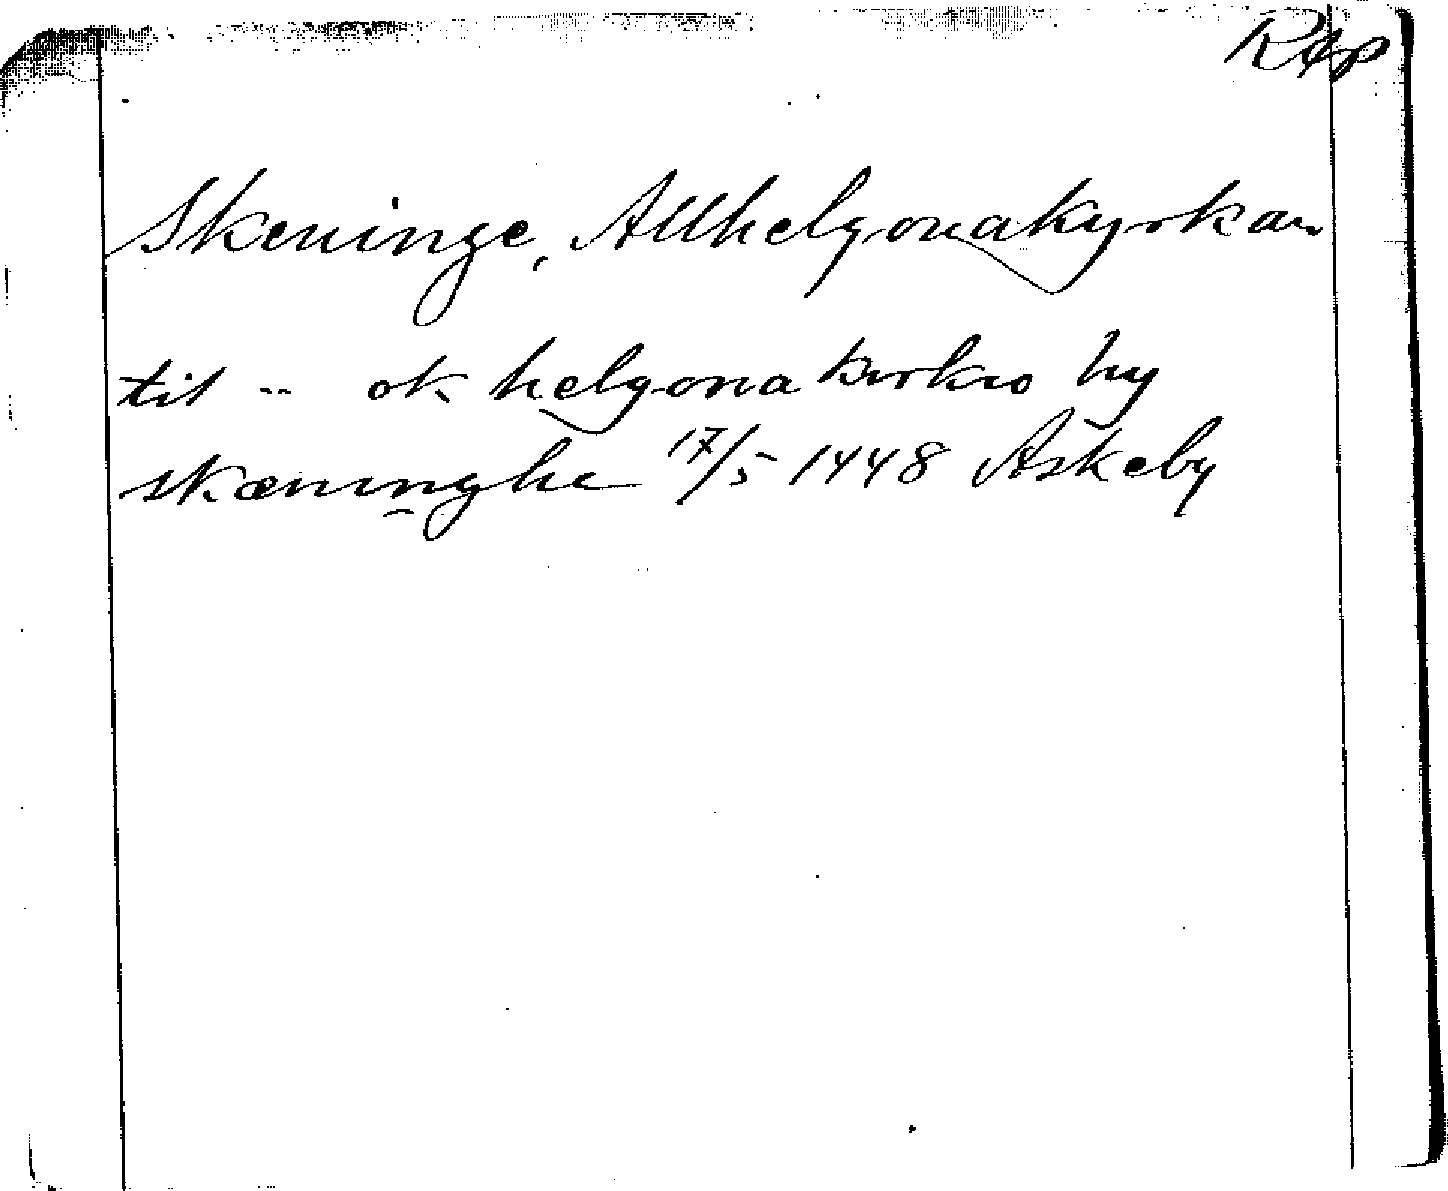 Rep
Skeninge, Allhelgonakyrkan
til -- ok helgona kirkio hy
skæninghe 17/5 1448 Askeby